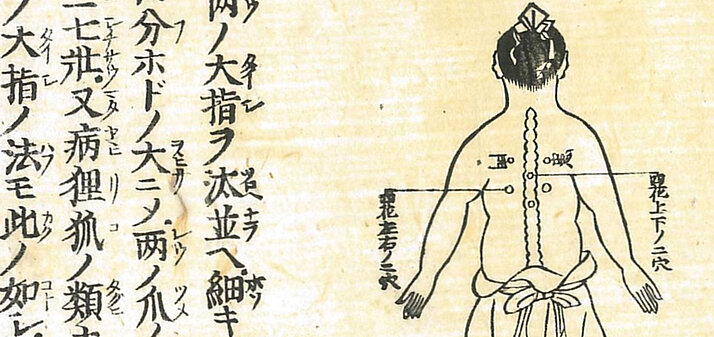 四花上下ノ二穴
患門
四花左右ノ二穴
両ノ大指ヲ汰並ヘ細キ
分ホドノ大ニメ両ノ爪ノ
二七壯又病狸狐ノ類
ノ大指ノ法モ此ノ如シ